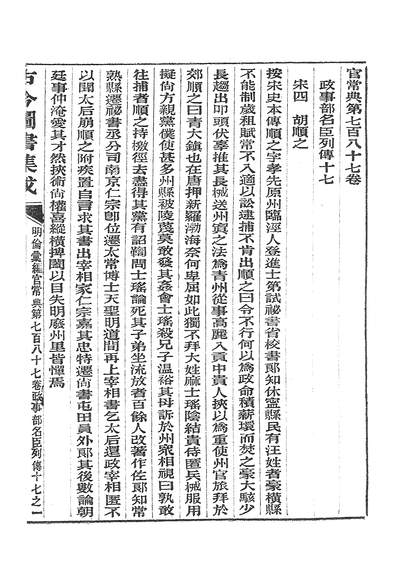 官常典第七百八十七卷
政事部名臣列傳十七
宋四　胡順之
按宋史本傳順之字孝先原州臨涇人登進士第試祕書省校書郎知休寧縣民有汪姓者豪橫縣
不能制歲租賦常不入適以訟逮捕不肯出順之曰令不行何以為政命積薪環而焚之豪大駭少
長趨出叩頭伏辜推其長械送州寘之法為青州從事高麗入貢中貴人挾以為重使州官旅拜於
郊順之曰青大鎮也在唐押新羅渤海奈何卑屈如此獨不拜大姓麻士瑤陰結貴侍匿兵械服用
擬尚方親黨僕使甚多州縣被陵蔑莫敢發其姦會士瑤殺兄子溫裕其母訴於州眾相視曰孰敢
往捕者順之持檄徑去盡得其黨有詔鞫問士瑤論死其子弟坐流放者百餘人改著作佐郎知常
熟縣遷祕書丞分司南京仁宗卽位遷太常博士天聖明道間再上宰相書乞太后還政宰相匿不
以聞太后崩順之附疾置自言求其書出宰相家仁宗嘉其忠特遷尚書屯田員外郎其後數論朝
廷事仲淹愛其才然挾術尚權喜縱橫捭闔以目失明廢州里皆憚焉
古今圖書集成
明倫彙編官常典第七百八十七卷政事部名臣列傳十七之一